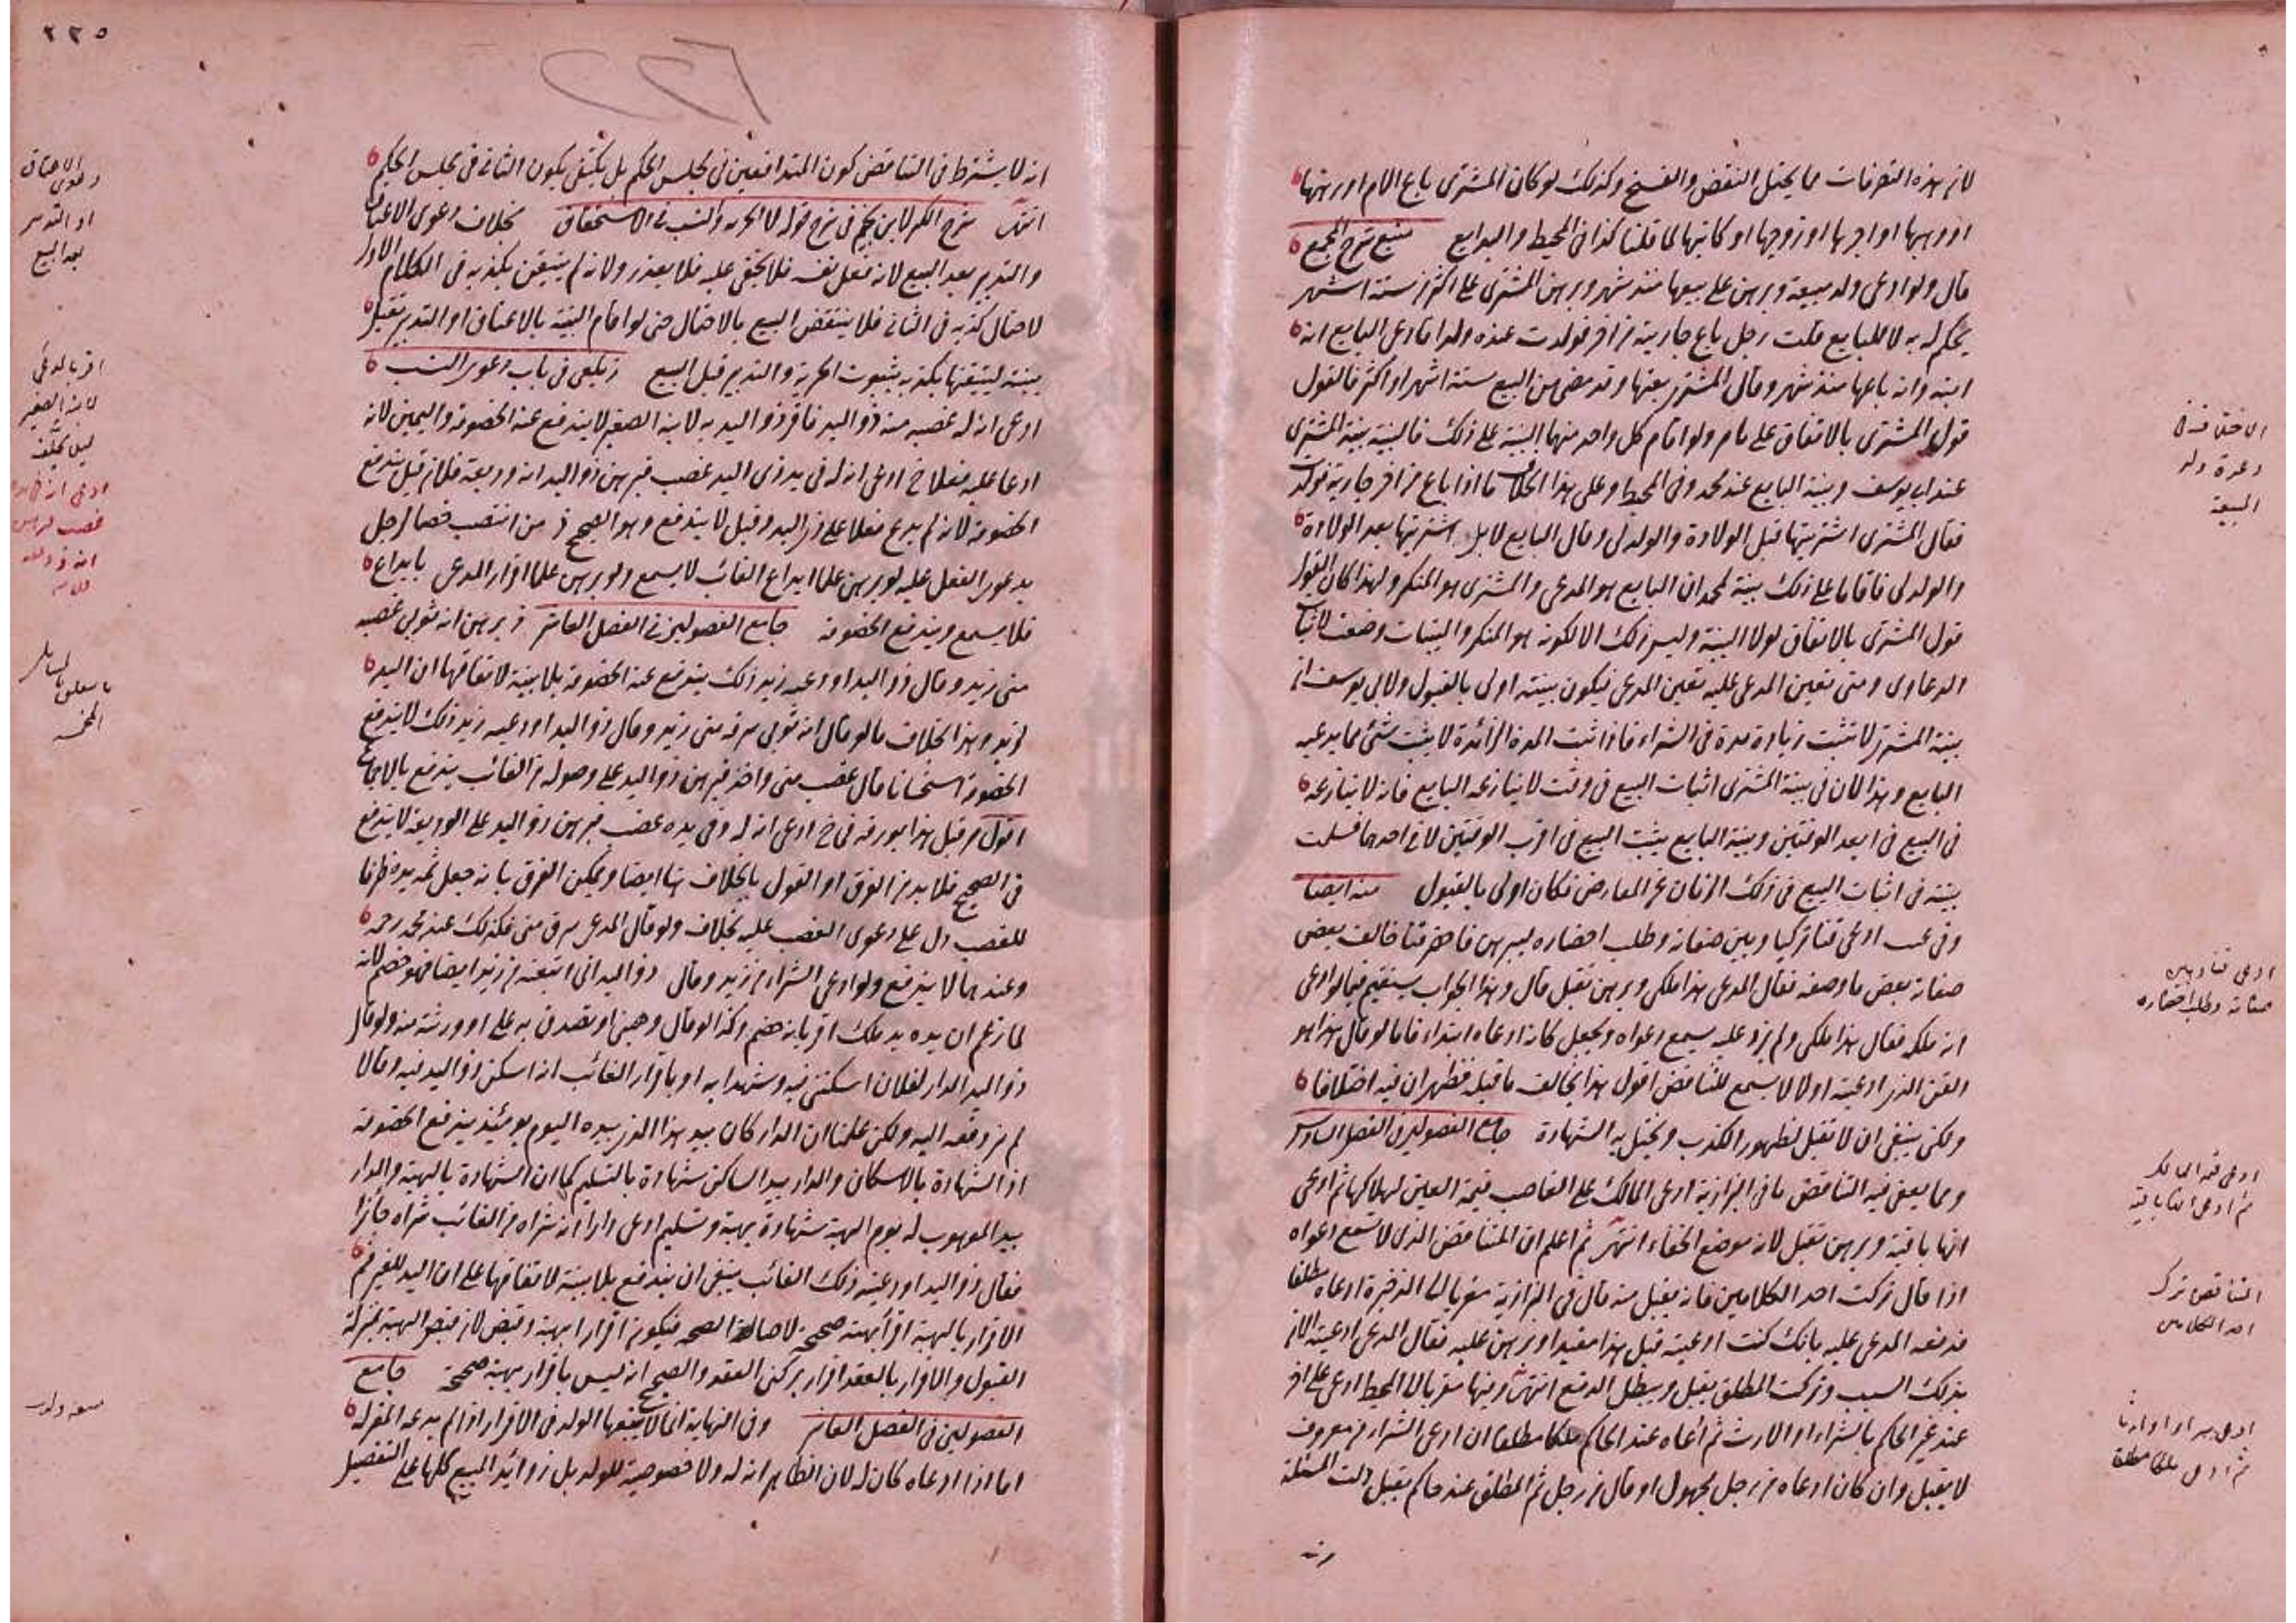 لان هذه التصرفات مما يحتمل النقض والفسخ وكذلك لو كان المشترى باع الام او رهنها
او وهبها او اجرها او زوجها او كاتبها لما قلنا كذا فى المحيط والبدايع منبع شرح المجمع
قال ولو ادعى ولد مبيعة وبرهن على بيعها منذ شهر وبرهن المشترى على اكثر من ستة اشهر
يحكم له به لا للبايع قلت رجل باع جارية من اخر فولدت عنده ولدا فادعى البايع انه
ابنه وانه باعها منذ شهر وقال المشترى بعتها وقد مضى من البيع ستة اشهر او اكثر فالقول
قول المشترى بالاتفاق على ما مر ولو اقام كل واحد منهما البينة على ذلك فالبينة بينة المشترى
عند ابى يوسف وبينة البايع عند محمد وفى المحيط وعلى هذا الخلاف ما اذا باع من اخر جارية فولدت
فقال المشترى اشتريتها قبل الولادة والولد لى وقال البايع لا بل اشتريتها بعد الولادة
والولد لى فاقاما على ذلك بينة لمحمد ان البايع هو المدعى والمشترى هو المنكر ولهذا كان القول
قول المشترى بالاتفاق لولا البينة وليس ذلك الا لكونه هو المنكر والبينات وضعت لاثبات
الدعاوى ومتى تعين المدعى عليه تعين المدعى فيكون بينته اولى بالقبول ولابى يوسف ان
بينة المشترى لا تثبت زيادة مدة فى الشراء فاذا ثبت المدة الزائدة لا يثبت شئ مما يدعيه
البايع وهذا لان فى بينة المشترى اثبات البيع فى وقت لا ينازعه البايع فانه لا ينازعه
فى البيع فى ابعد الوقتين وبينة البايع يثبت البيع فى اقرب الوقتين لا فى احدهما فسلمت
بينته فى اثبات البيع فى ذلك الزمان عن المعارض فكان اولى بالقبول منه ايضا
وفى ادعى قنا تركيا وبين صفاته وطلب احضاره ليبرهن فاحضر قنا خالف بعض
صفاته بعض ما وصفه فقال المدعى هذا ملكى وبرهن تقبل قال وهذا الجواب يستقيم فيما لو ادعى
انه ملكه فقال هذا ملكى ولم يزد عليه يسمع دعواه ويجعل كانه ادعاه ابتداء فاما لو قال هذا هو
القن الذى ادعيته اولا لا يسمع للتناقض اقول هذا يخالف ما قبله فظهر ان فيه اختلافا
ولكن ينبغى ان لا تقبل لظهور الكذب ويختل به الشهادة جامع الفصولين فى الفصل السادس
ومما يعفى فيه التناقض ما فى البزازية ادعى المالك على الغاصب قيمة العين لهلاكها ثم ادعى
انها باقية وبرهن تقبل لانه موضع الخفاء انتهى ثم اعلم ان المتناقض الذى لا تسمع دعواه
اذا قال تركت احد الكلامين فانه يقبل منه قال فى البزازية معزيا الى الذخيرة ادعاه مطلقا
فدفعه المدعى عليه بانك كنت ادعيته قبل هذا مقيدا وبرهن عليه فقال المدعى ادعيته الان
بذلك السبب وتركت المطلق يقبل ويبطل الدفع انتهى وفيها معزيا الى المحيط ادعى على اخر
عند غير الحاكم بالشراء او الارث ثم ادعاه عند الحاكم ملكا مطلقا ان ادعى الشراء من معروف
لا يقبل وان كان ادعاه من رجل مجهول او قال من رجل ثم المطلق عند حاكم يقبل دلت المسئلة
الاختلاف فى
دعوة ولد
المبيعة
ادعى قنا وبين
صفاته وطلب احضاره
ادعى قيمة المالك
ثم ادعى انها باقية
المتناقض ترك
احد الكلامين
ثم ادعى ملكا مطلقا
٢٢٥
انه لا يشترط فى التناقض كون المتدافعين فى مجلس الحكم بل يكتفى بكون الثانى فى مجلس الحكم
انتهى شرح الكنز لابن نجيم فى شرح قوله لا الحرية والنسب فى الاستحقاق بخلاف دعوى الاعتاق
والتدبير بعد البيع لانه فعل نفسه فلا يخفى عليه فلا يعذر ولانه لم يتيقن بكذبه فى الكلام الاول
لاحتمال كذبه فى الثانى فلا ينتقض البيع بالاحتمال حتى لو اقام البينة بالاعتاق او التدبير تقبل
بينته لتيقنها بكذبه بثبوت الحرية والتدبير قبل البيع زيلعى فى باب دعوى النسب
ادعى انه له غصبه منه ذو اليد فاقر ذو اليد به لابنه الصغير لا يندفع عنه الخصومة واليمين لانه
ادعا عليه فعلا خ ادعى انه له فى يد ذى اليد غصب فبرهن ذو اليد انه وديعة فلان قيل يندفع
الخصومة لانه لم يدع فعلا على ذى اليد وقيل لا يندفع وهو الصحيح ذ من انتصب خصما لرجل
بدعوى الفعل عليه لو برهن على ايداع الغائب لا يسمع ولو برهن على اقرار المدعى بايداع
فلا يسمع ويندفع الخصومة جامع الفصولين فى الفصل العاشر ذ برهن انه ثوبى غصبه
منى زيد وقال ذو اليد اودعنيه زيد ذلك يندفع عنه الخصومة بلا بينة لاتفاقهما ان اليد
لزيد وهذا بخلاف ما لو قال انه ثوبى سرقه منى زيد وقال ذو اليد اودعنيه زيد ذلك لا يندفع
الخصومة استحسانا قال غصب منى واخذ فبرهن ذو اليد على وصوله من الغائب يندفع بالاجماع
اقول مر قبل هذا بورقة فى خ ادعى انه له وفى يده غصب فبرهن ذو اليد على الوديعة لا يندفع
فى الصحيح فلا بد من الفرق او القول بالخلاف هنا ايضا ويمكن الفرق بانه جعل ثمه يده ظرفا
للغصب دل على دعوى الغصب عليه بخلافه ولو قال المدعى سرق منى فكذلك عند محمد رحمه
وعندهما لا يندفع ولو ادعى الشراء من زيد وقال ذو اليد انى ابتعته من زيد ايضا فهو خصم لانه
لما زعم ان يده يد ملك اقر بانه خصم وكذا لو قال وهبنى او تصدق به على او ورثته منه ولو قال
ذو اليد الدار لفلان اسكننى فيه وشهدا به او باقرار الغائب انه اسكن ذو اليد فيه وقالا
لم نر دفعه اليه ولكن علمنا ان الدار كان بيد هذا الذى بيده اليوم يومئذ يندفع الخصومة
اذ الشهادة بالاسكان والدار بيد الساكن شهادة بالتسليم كما ان الشهادة بالهبة والدار
بيد الموهوب له يوم الهبة شهادة بهبة وتسليم ادعى دارا انه شراه من الغائب شراه جائزا
فقال ذو اليد اودعنيه ذلك الغائب ينبغى ان يندفع بلا بينة لاتفاقهما على ان اليد للغير
الاقرار بالهبة اقرار بهبة صحيحة لاصالة الصحة فيكون اقرارا بهبة وقبض لان قبض الهبة بمنزلة
القبول والاقرار بالعقد اقرار بركنى العقد والصحيح انه ليس باقرار بهبة صحيحة جامع
الفصولين فى الفصل العاشر وفى النهاية انما لا يتبعها الولد فى الاقرار اذا لم يدعه المقر له
اما اذا ادعاه كان له لان الظاهر انه له ولا خصوصية للولد بل زوائد المبيع كلها على التفصيل
دعوى الاعتاق
او التدبير
بعد البيع
اقر بالمدعى
لابنه الصغير